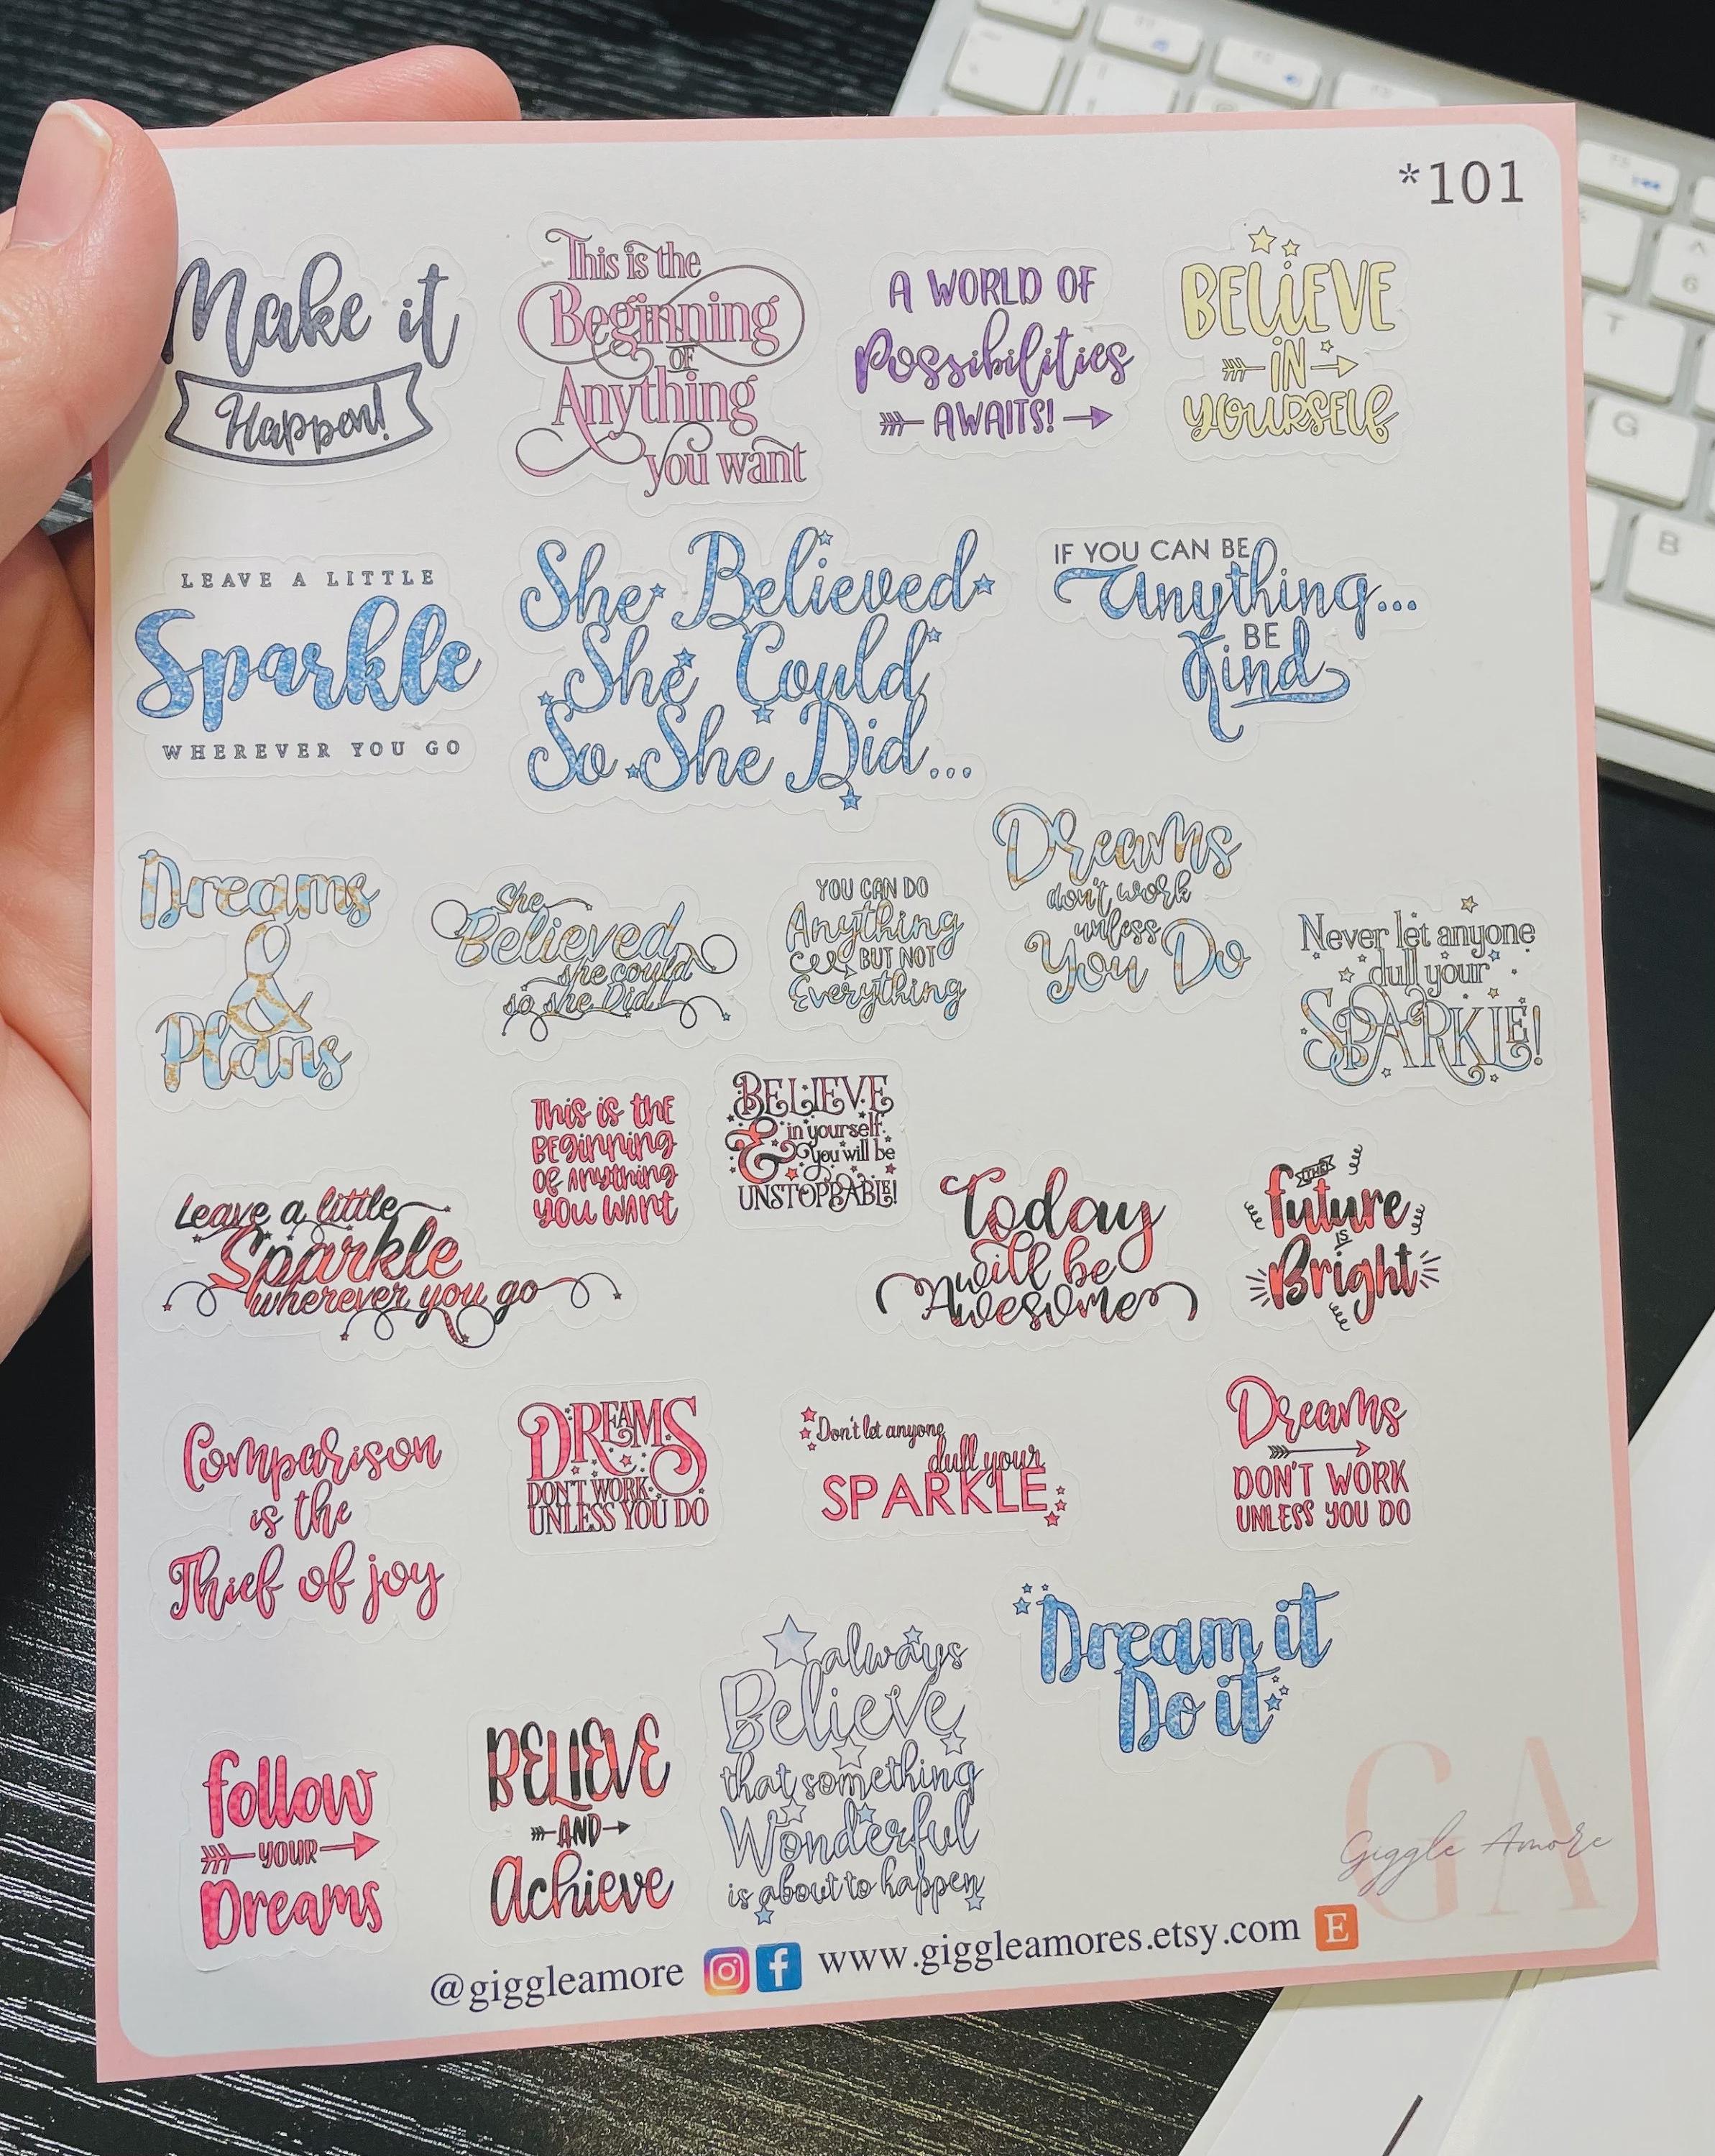 *101
Make it
Happen!
This is the
Beginning
OF
Anything
you want
A WORLD OF
Possibilities
AWAITS!
BELiEVE
iN
YOURSELF
LEAVE A LITTLE
Sparkle
WHEREVER YOU GO
She Believed
She Could
So She Did...
IF YOU CAN BE
Anything...
BE
Kind
Dreams
&
Plans
She
Believed
she could
so she Did!
YOU CAN DO
Anything
BUT NOT
Everything
Dreams
don't work
unless
You Do
Never let anyone
dull your
SPARKLE!
This is the
Beginning
of anything
you want
BELIEVE
in yourself
& You will be
UNSTOPPABLE!
Leave a little
Sparkle
wherever you go
Today
will be
Awesome
THE
future
IS
Bright
Comparison
is the
Thief of joy
DREAMS
DON'T WORK
UNLESS YOU DO
Don't let anyone
dull your
SPARKLE
Dreams
DON'T WORK
UNLESS YOU DO
follow
YOUR
Dreams
BELIEVE
AND
Achieve
always
Believe
that something
Wonderful
is about to happen
Dream it
Do it
GA
Giggle Amore
@giggleamore
f
www.giggleamores.etsy.com
E
T
G
B
6